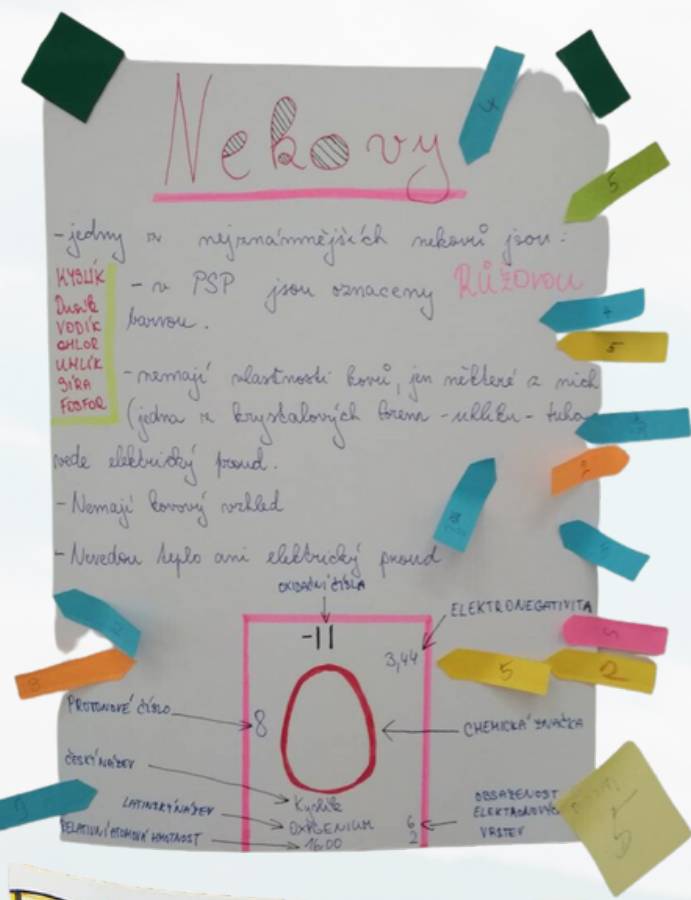 Nekovy
-jedny z nejznámnějších nekovů jsou:
KYSLÍK
Dusík
VODÍK
CHLOR
UHLÍK
SÍRA
FOSFOR
- v PSP jsou oznaceny RŮŽOVOU
barvou.
-nemají vlastnosti kovů, jen některé z nich
(jedna z krystalových forem - uhlíku - tuha
vede elektrický proud.
- Nemají kovový vzhled
- Nevedou teplo ani elektrický proud
OXIDAČNÍ ČÍSLA
ELEKTRONEGATIVITA
-II
3,44
PROTONOVÉ ČÍSLO
8
O
CHEMICKÁ ZNAČKA
ČESKÝ NÁZEV
Kyslík
LATINSKÝ NÁZEV
OXYGENIUM
RELATIVNÍ ATOMOVÁ HMOTNOST
16.00
6
2
OBSAZENOST
ELEKTRONOVÝC
VRSTEV
4
5
5
5
2
5